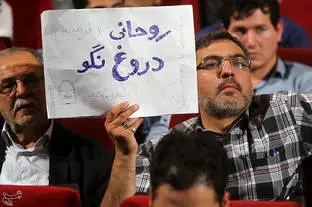 روحانی
دروغ نگو